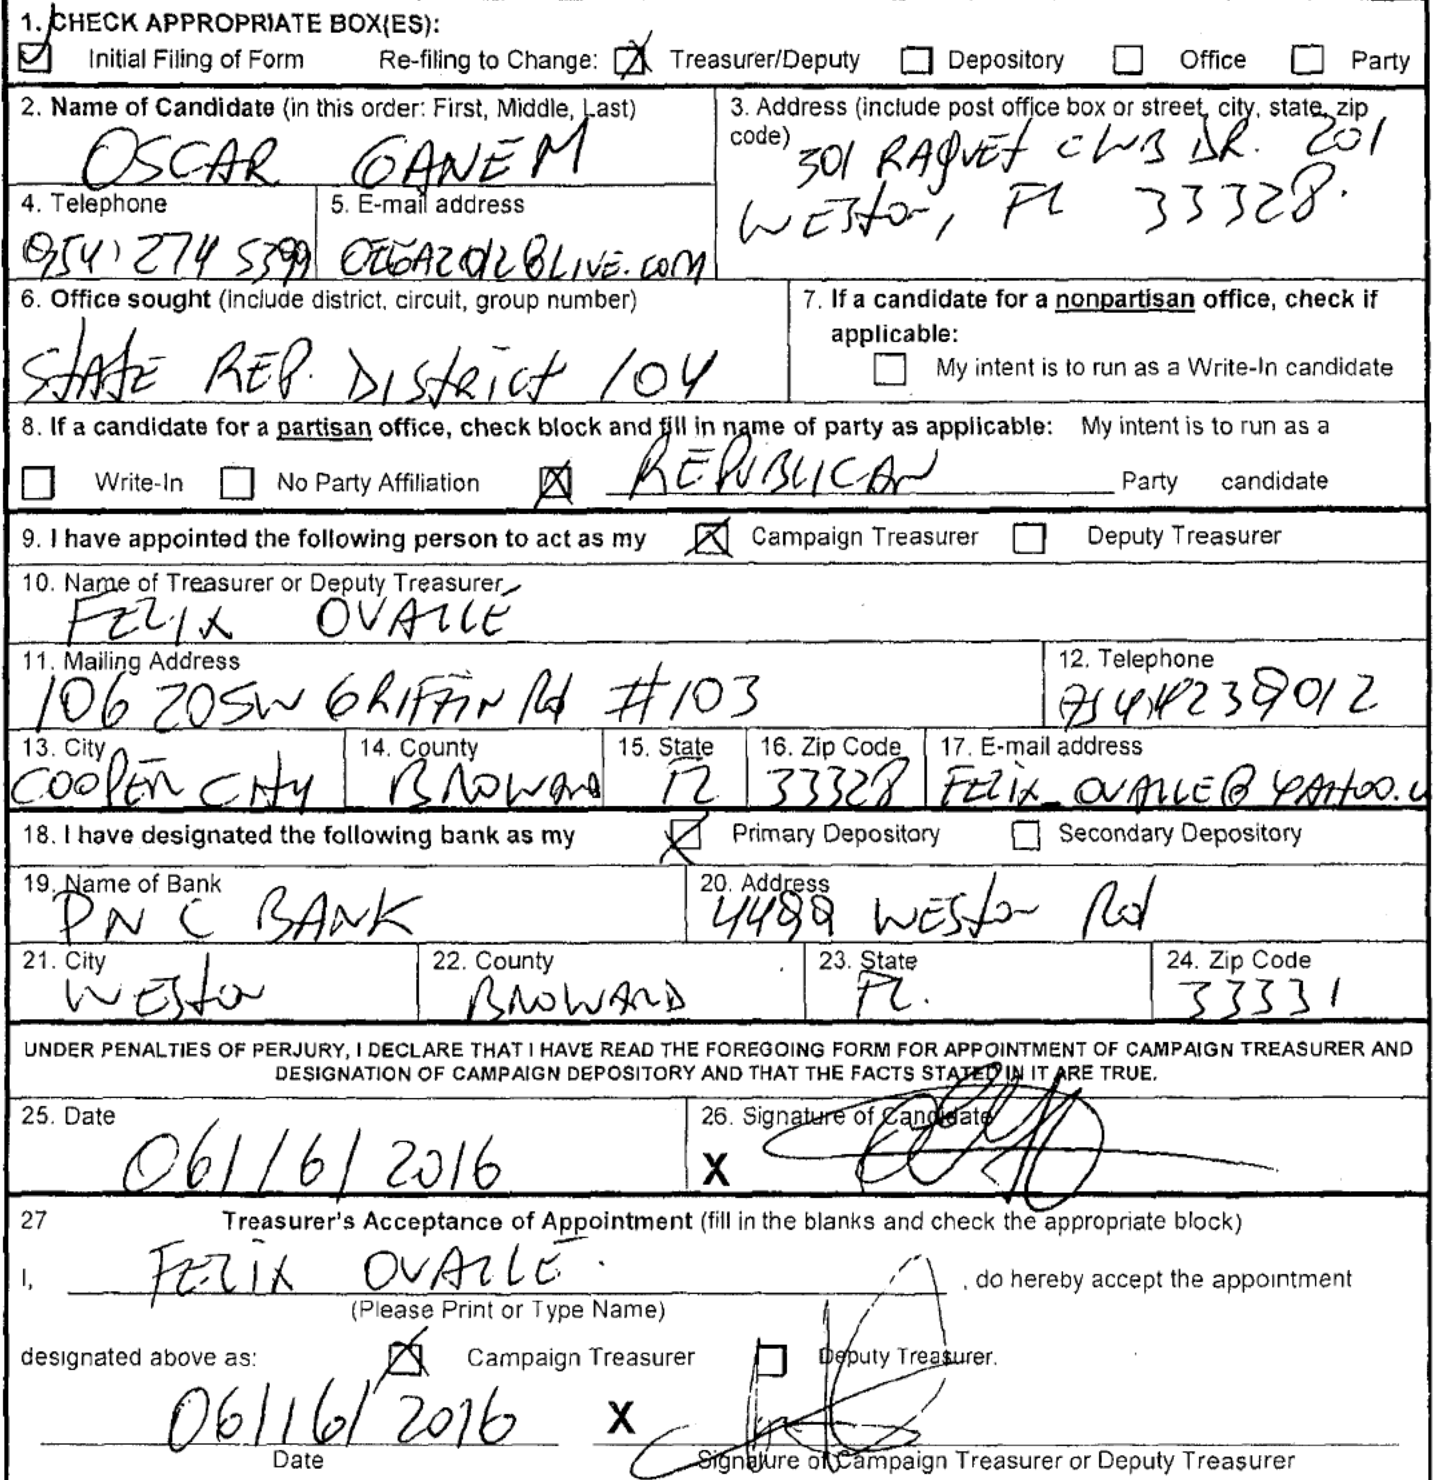 1. CHECK APPROPRIATE BOX(ES):
Initial Filing of Form Re-filing to Change: Treasurer/Deputy Depository Office Party
2. Name of Candidate (in this order: First, Middle, Last)
OSCAR GANEM
3. Address (include post office box or street, city, state, zip
code)
301 RAQUET CLUB DR. 201
WESton, FL 33328.
4. Telephone
(954) 274 5399
5. E-mail address
@LIVE.COM
6. Office sought (include district, circuit, group number)
STATE REP. DIStRict 104
7. If a candidate for a nonpartisan office, check if
applicable:
My intent is to run as a Write-In candidate
8. If a candidate for a partisan office, check block and fill in name of party as applicable: My intent is to run as a
Write-In No Party Affiliation REPUBLICAN Party candidate
9. I have appointed the following person to act as my Campaign Treasurer Deputy Treasurer
10. Name of Treasurer or Deputy Treasurer
FELIX OVALLE
11. Mailing Address
10620 SW GRIFFIN Rd #103
12. Telephone
13. City
COOPER CITY
14. County
BROWARD
15. State
FL
16. Zip Code
33328
17. E-mail address
FELIX_OVALLE@YAHOO.
18. I have designated the following bank as my Primary Depository Secondary Depository
19. Name of Bank
PNC BANK
20. Address
WESton Rd
21. City
WESton
22. County
BROWARD
23. State
FL.
24. Zip Code
33331
UNDER PENALTIES OF PERJURY, I DECLARE THAT I HAVE READ THE FOREGOING FORM FOR APPOINTMENT OF CAMPAIGN TREASURER AND
DESIGNATION OF CAMPAIGN DEPOSITORY AND THAT THE FACTS STATED IN IT ARE TRUE.
25. Date
06/16/2016
26. Signature of Candidate
X
27 Treasurer's Acceptance of Appointment (fill in the blanks and check the appropriate block)
I, FELIX OVALLE. , do hereby accept the appointment
(Please Print or Type Name)
designated above as: Campaign Treasurer Deputy Treasurer.
06/16/2016 X
Date Signature of Campaign Treasurer or Deputy Treasurer